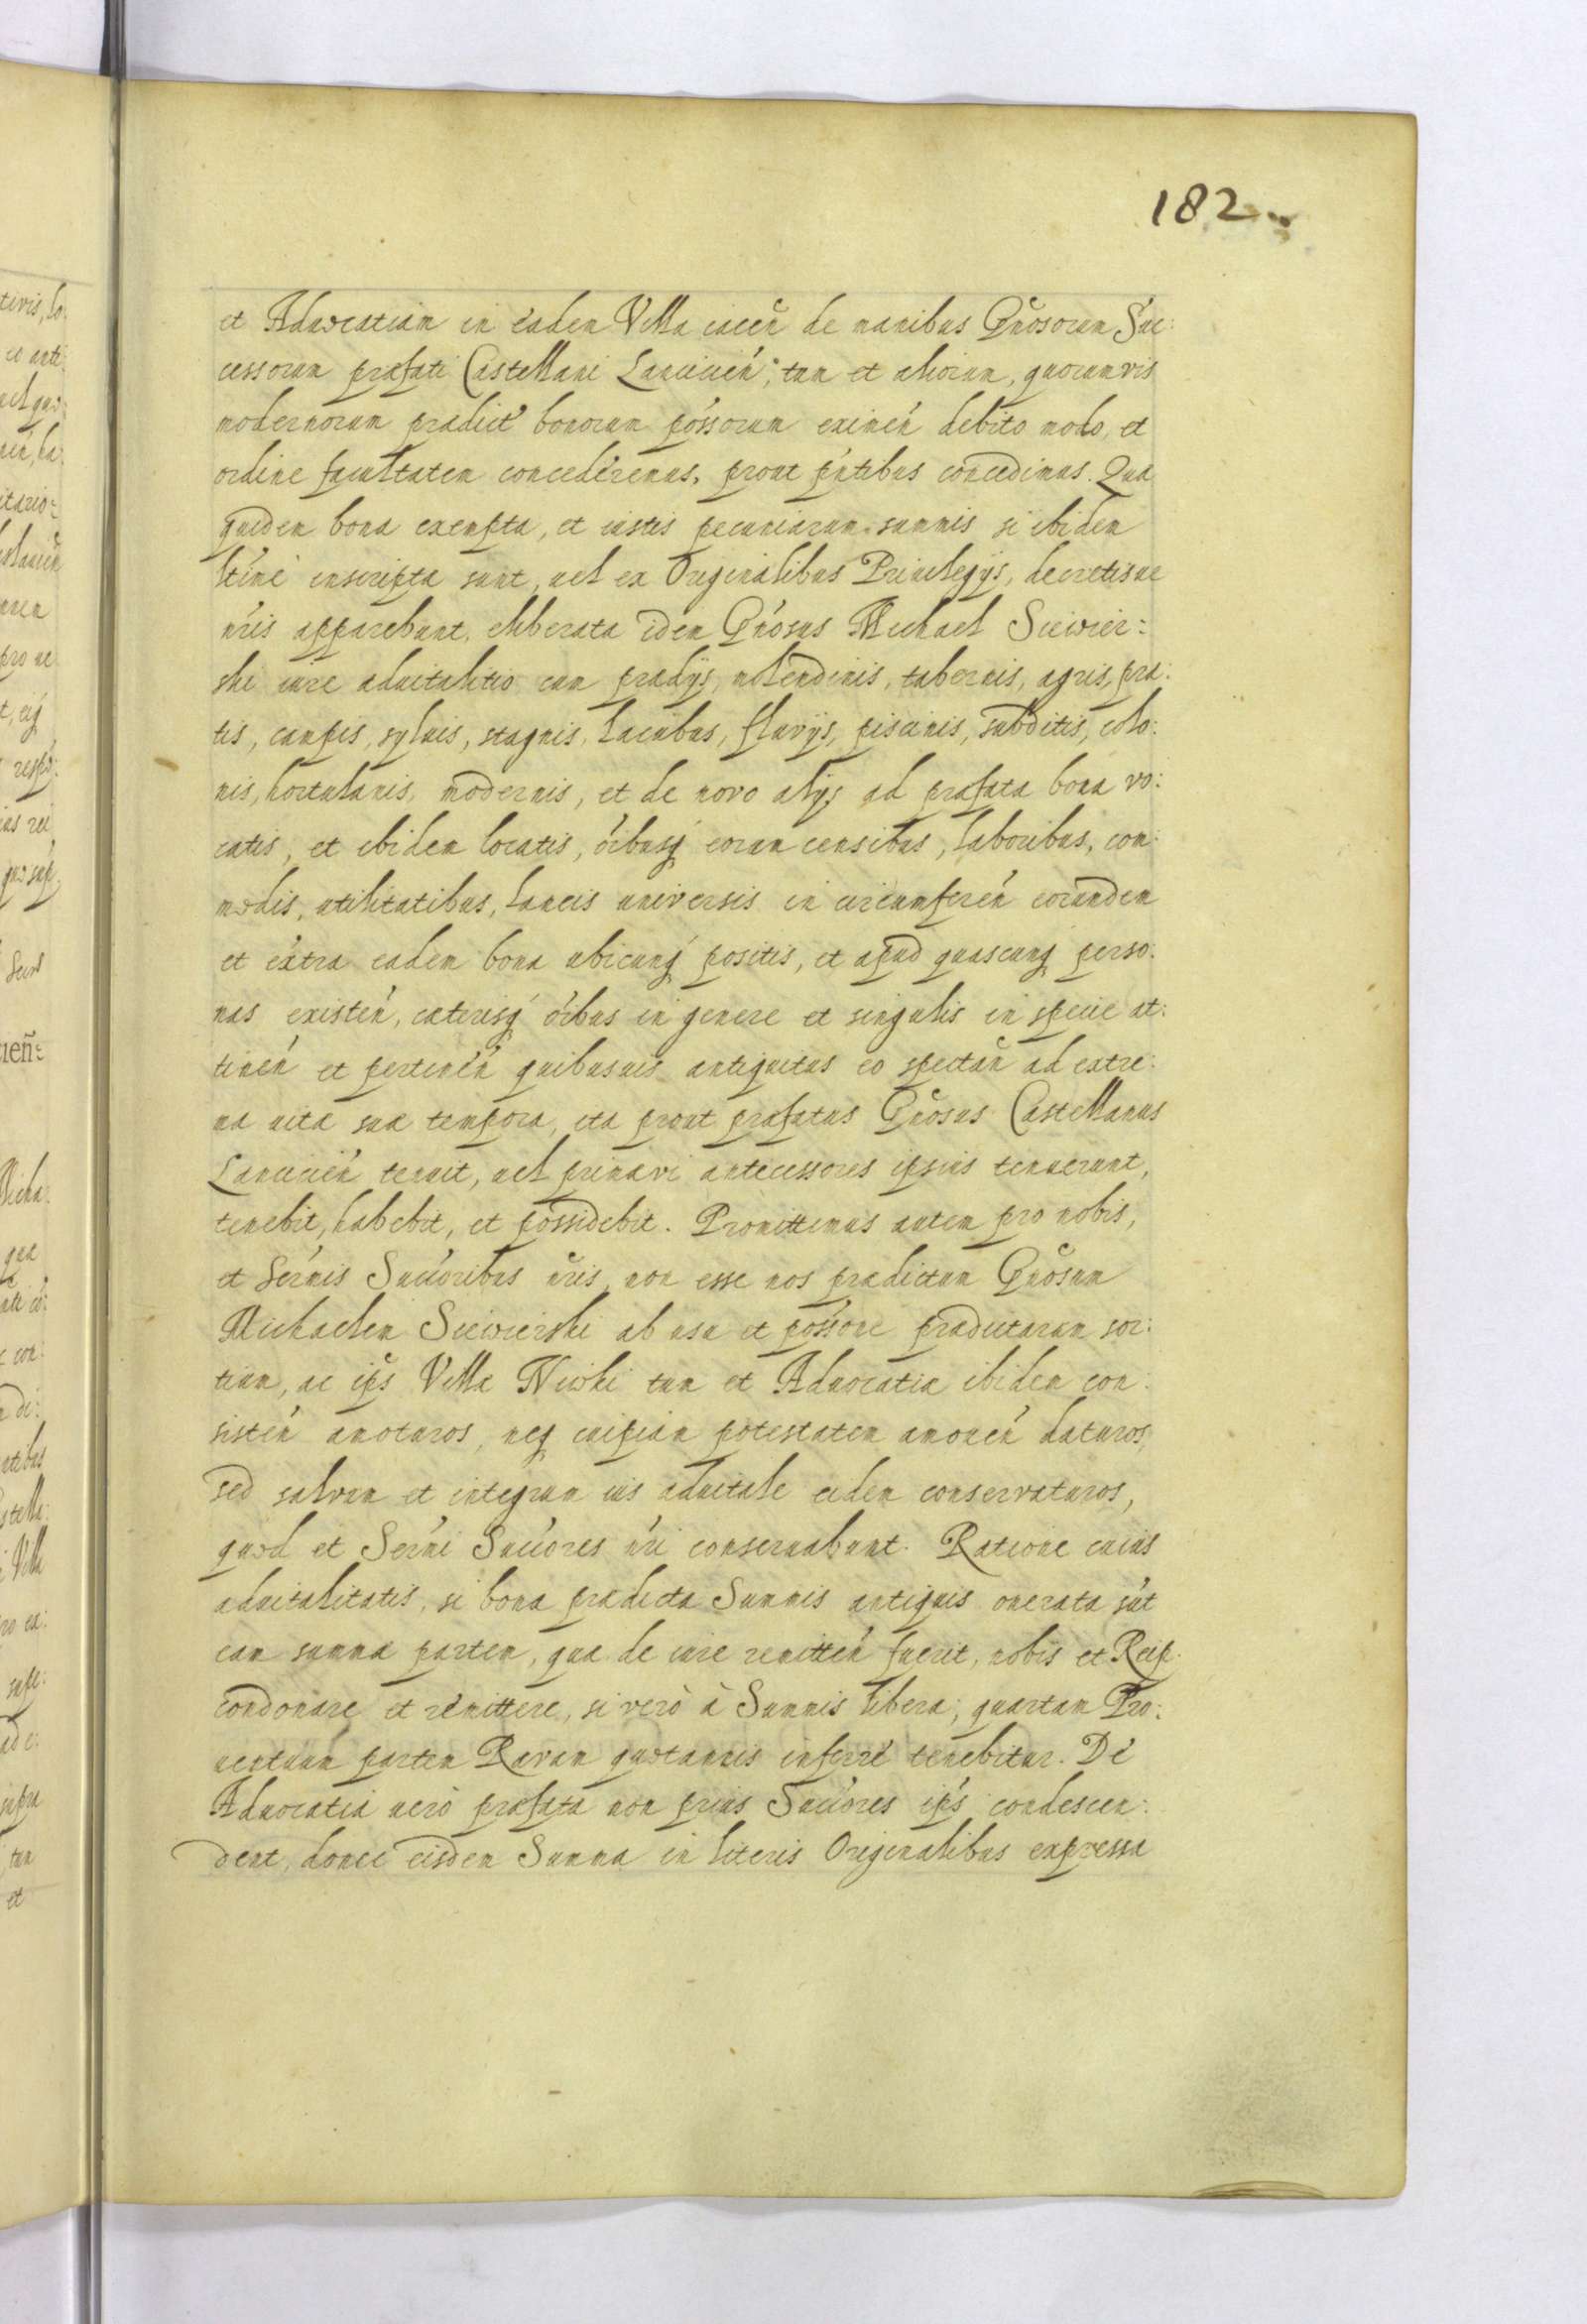 182
et Aduocatiam in eadem Villa iaceñ de manibus Gñosorum Suc:
cessorum præfati Castellani Lanciciéń, tum et aliorum, quorumvis
modernorum prædict bonorum pos̃sorum eximeń debito modo, et
ordine facultatem concederemus, prout pñtibus concedimus. Quæ
quidem bona exempta, et iustis pecuniarum summis si ibidem
ltime inscriptæ sunt, uel ex Originalibus Priuilegijs, decretisue
nr̃is apparebunt, eliberata idem Gñosus Michael Siewier:
ski iure aduitalitio cum prædijs, molendinis, tabernis, agris, pra:
tis, campis, syluis, stagnis, lacubus, fluvijs, piscinis, subditis, colo:
nis, hortulanis, modernis, et de novo alijs ad præfata bona vo:
catis, et ibidem locatis, oĩbusq eorum censibus, laboribus, com:
modis, utilitatibus, laneis universis in circumfereń eorundem
et extra eadem bona ubicunq positis, et apud quascunq perso:
nas existeń, cæterisq oĩbus in genere et singulis in specie at:
tineń et pertineń quibusuis antiquitus eo spectañ ad extre:
ma uitæ suæ tempora, ita prout præfatus Gñosus Castellanus
Lancicień tenuit, uel primævi antecessores ipsius tenuerunt,
tenebit, habebit, et possidebit. Promittimus autem pro nobis,
et Serm̃is Succ̃oribus nr̃is, non esse nos prædictum Gñosum
Michaelem Siewierski ab usu et pos̃sore prædictarum sor:
tium, ac ips Villæ Niwki tum et Aduocatiæ ibidem con:
sisteń amoturos, neq cuipiam potestatem amoueń daturos,
sed salvum et integrum ius aduitale eidem conservaturos,
quod et Serm̃i Succ̃ores nr̃i conseruabunt. Ratione cuius
aduitalitatis, si bona prædicta Summis antiquis onerata sút
eam summæ partem, quæ de iure remitteń fuerit, nobis et Reip.
condonare et remittere, si verò à Summis libera; quartam Pro:
uentuum partem Ravam quotannis inferre tenebitur. De
Aduocatia uerò præfata non prius Succ̃ores ips condescen:
dent, donec eisdem Summa in literis Originalibus expressa